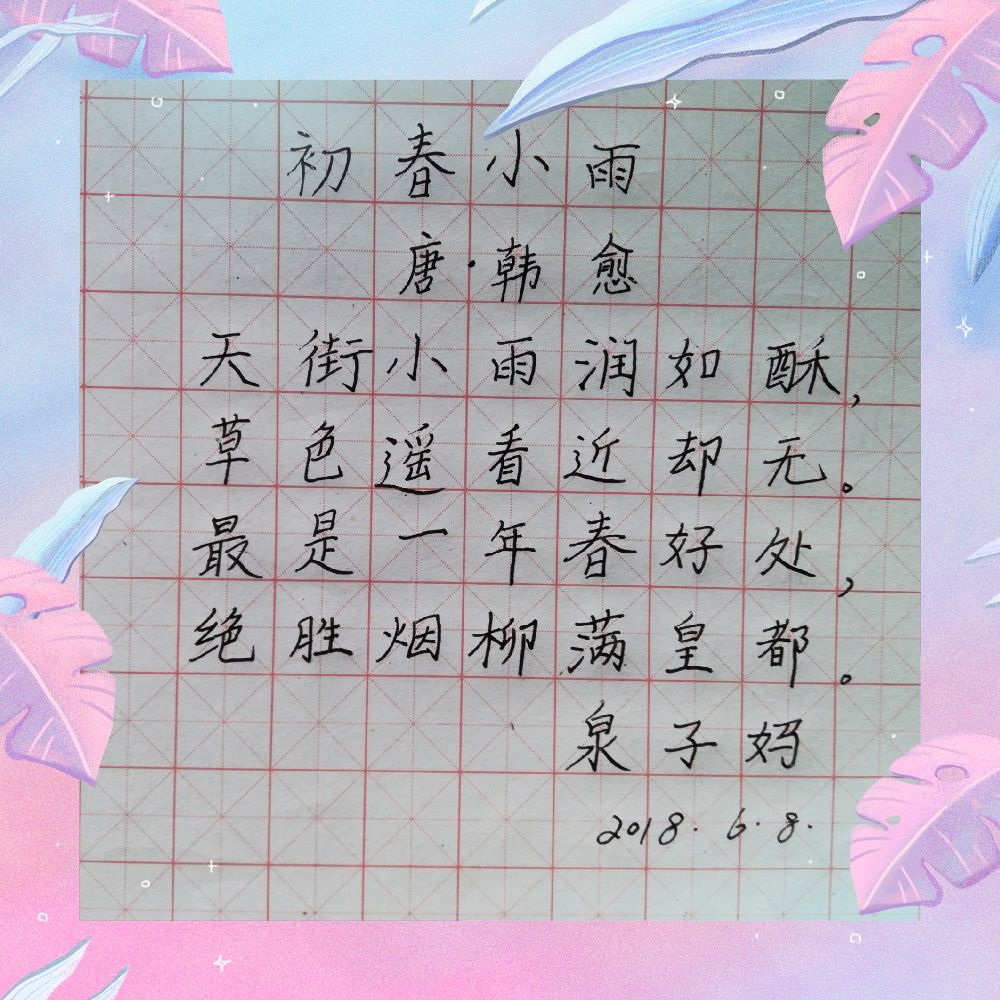 初春小雨
唐·韩愈
天街小雨润如酥，
草色遥看近却无。
最是一年春好处，
绝胜烟柳满皇都。
泉子妈
2018.6.8.